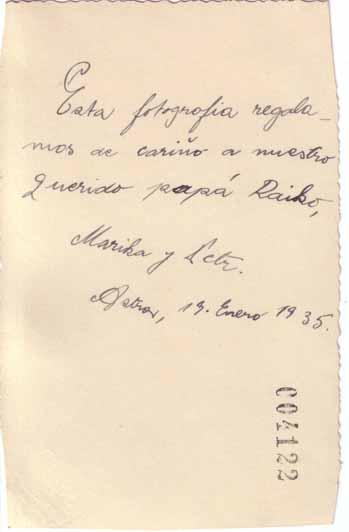 Esta fotografia regala-
mos de cariño a nuestro
querido papá Raiko,
Marika y
Enero 1935.
004122